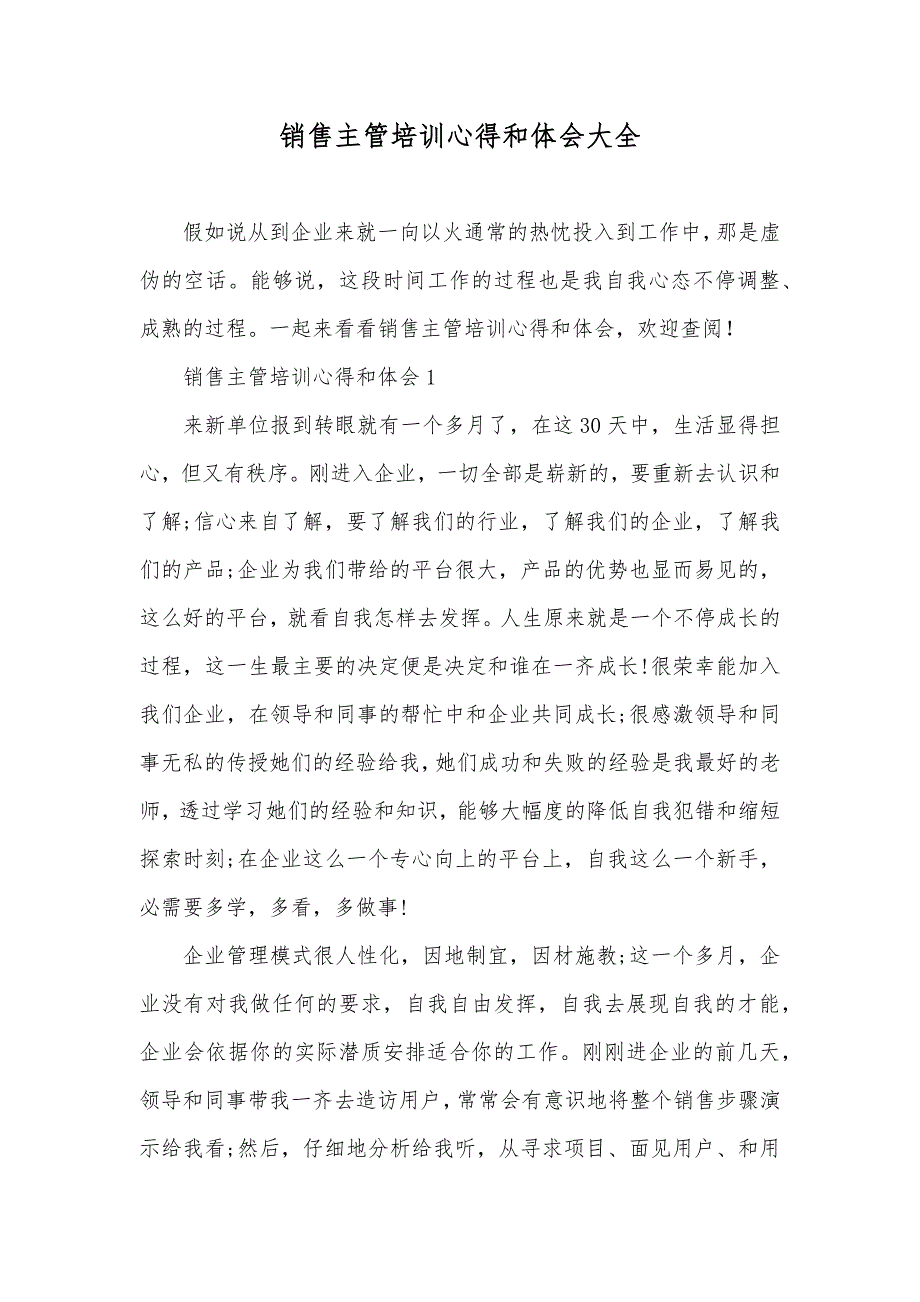 销售主管培训心得和体会大全
假如说从到企业来就一向以火通常的热忱投入到工作中，那是虚
伪的空话。能够说，这段时间工作的过程也是我自我心态不停调整、
成熟的过程。一起来看看销售主管培训心得和体会，欢迎查阅！
销售主管培训心得和体会 1
来新单位报到转眼就有一个多月了，在这 30 天中，生活显得担
心，但又有秩序。刚进入企业，一切全部是崭新的，要重新去认识和
了解;信心来自了解，要了解我们的行业，了解我们的企业，了解我
们的产品;企业为我们带给的平台很大，产品的优势也显而易见的，
这么好的平台，就看自我怎样去发挥。人生原来就是一个不停成长的
过程，这一生最主要的决定便是决定和谁在一齐成长!很荣幸能加入
我们企业，在领导和同事的帮忙中和企业共同成长;很感激领导和同
事无私的传授她们的经验给我，她们成功和失败的经验是我最好的老
师，透过学习她们的经验和知识，能够大幅度的降低自我犯错和缩短
探索时刻;在企业这么一个专心向上的平台上，自我这么一个新手，
必需要多学，多看，多做事!
企业管理模式很人性化，因地制宜，因材施教;这一个多月，企
业没有对我做任何的要求，自我自由发挥，自我去展现自我的才能，
企业会依据你的实际潜质安排适合你的工作。刚刚进企业的前几天，
领导和同事带我一齐去造访用户，常常会有意识地将整个销售步骤演
示给我看;然后，仔细地分析给我听，从寻求项目、面见用户、和用